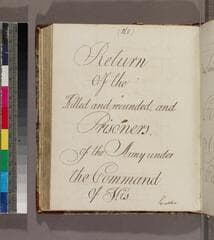 Return
Of the
Killed and wounded and
Prisoners,
of the Army under
the Command
of His